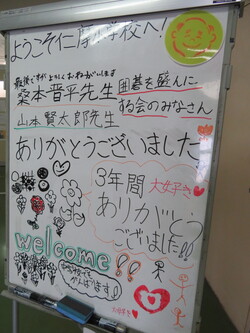 ようこそ仁摩小学校へ!
最後ですがよろしくおねがいします
桑本晋平先生
囲碁を盛んに
する会のみなさん
山本賢太郎先生
ありがとうございました
3年間
大好き
ありがとう
ございました!!
welcome!!
がんばります!
大好き